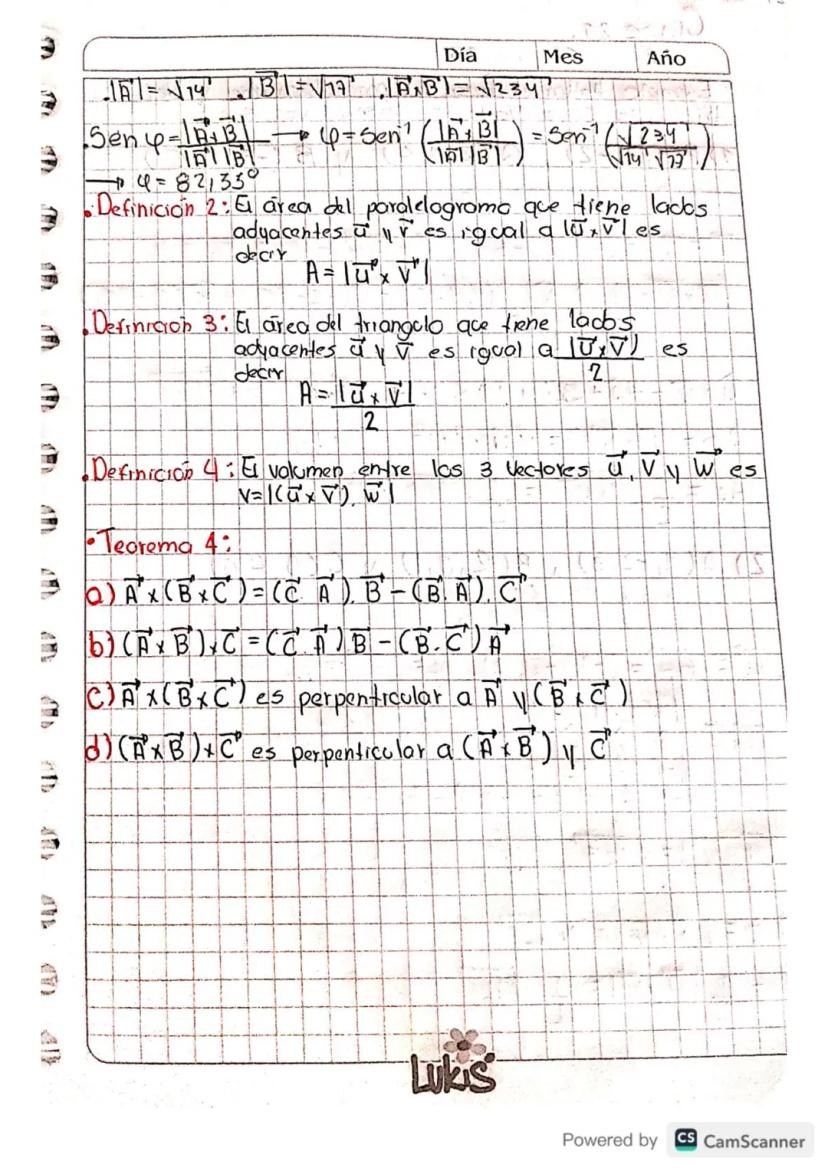 Día Mes Año
.|A⃗| = √14 .|B⃗| = √17 .|A⃗×B⃗| = √234
.Sen φ = |A⃗×B⃗| / |A⃗| |B⃗| → φ = Sen⁻¹ (|A⃗×B⃗| / |A⃗| |B⃗|) = Sen⁻¹ (√234 / √14 √17)
→ φ = 82,33°
.Definición 2: El área del paralelogramo que tiene lados
adyacentes u⃗ y v⃗ es igual a |u⃗×v⃗| es
decir
A = |u⃗ × v⃗|
.Definición 3: El área del triangulo que tiene lados
adyacentes u⃗ y v⃗ es igual a |u⃗×v⃗| / 2 es
decir
A = |u⃗ × v⃗| / 2
.Definición 4: El volumen entre los 3 vectores u⃗, v⃗ y w⃗ es
V = |(u⃗ × v⃗). w⃗|
• Teorema 4:
a) A⃗ × (B⃗ × C⃗) = (C⃗. A⃗). B⃗ − (B⃗. A⃗). C⃗
b) (A⃗ × B⃗) × C⃗ = (C⃗. A⃗) B⃗ − (B⃗. C⃗) A⃗
c) A⃗ × (B⃗ × C⃗) es perpenticular a A⃗ y (B⃗ × C⃗)
d) (A⃗ × B⃗) × C⃗ es perpenticular a (A⃗ × B⃗) y C⃗
Lukis
Powered by CS CamScanner